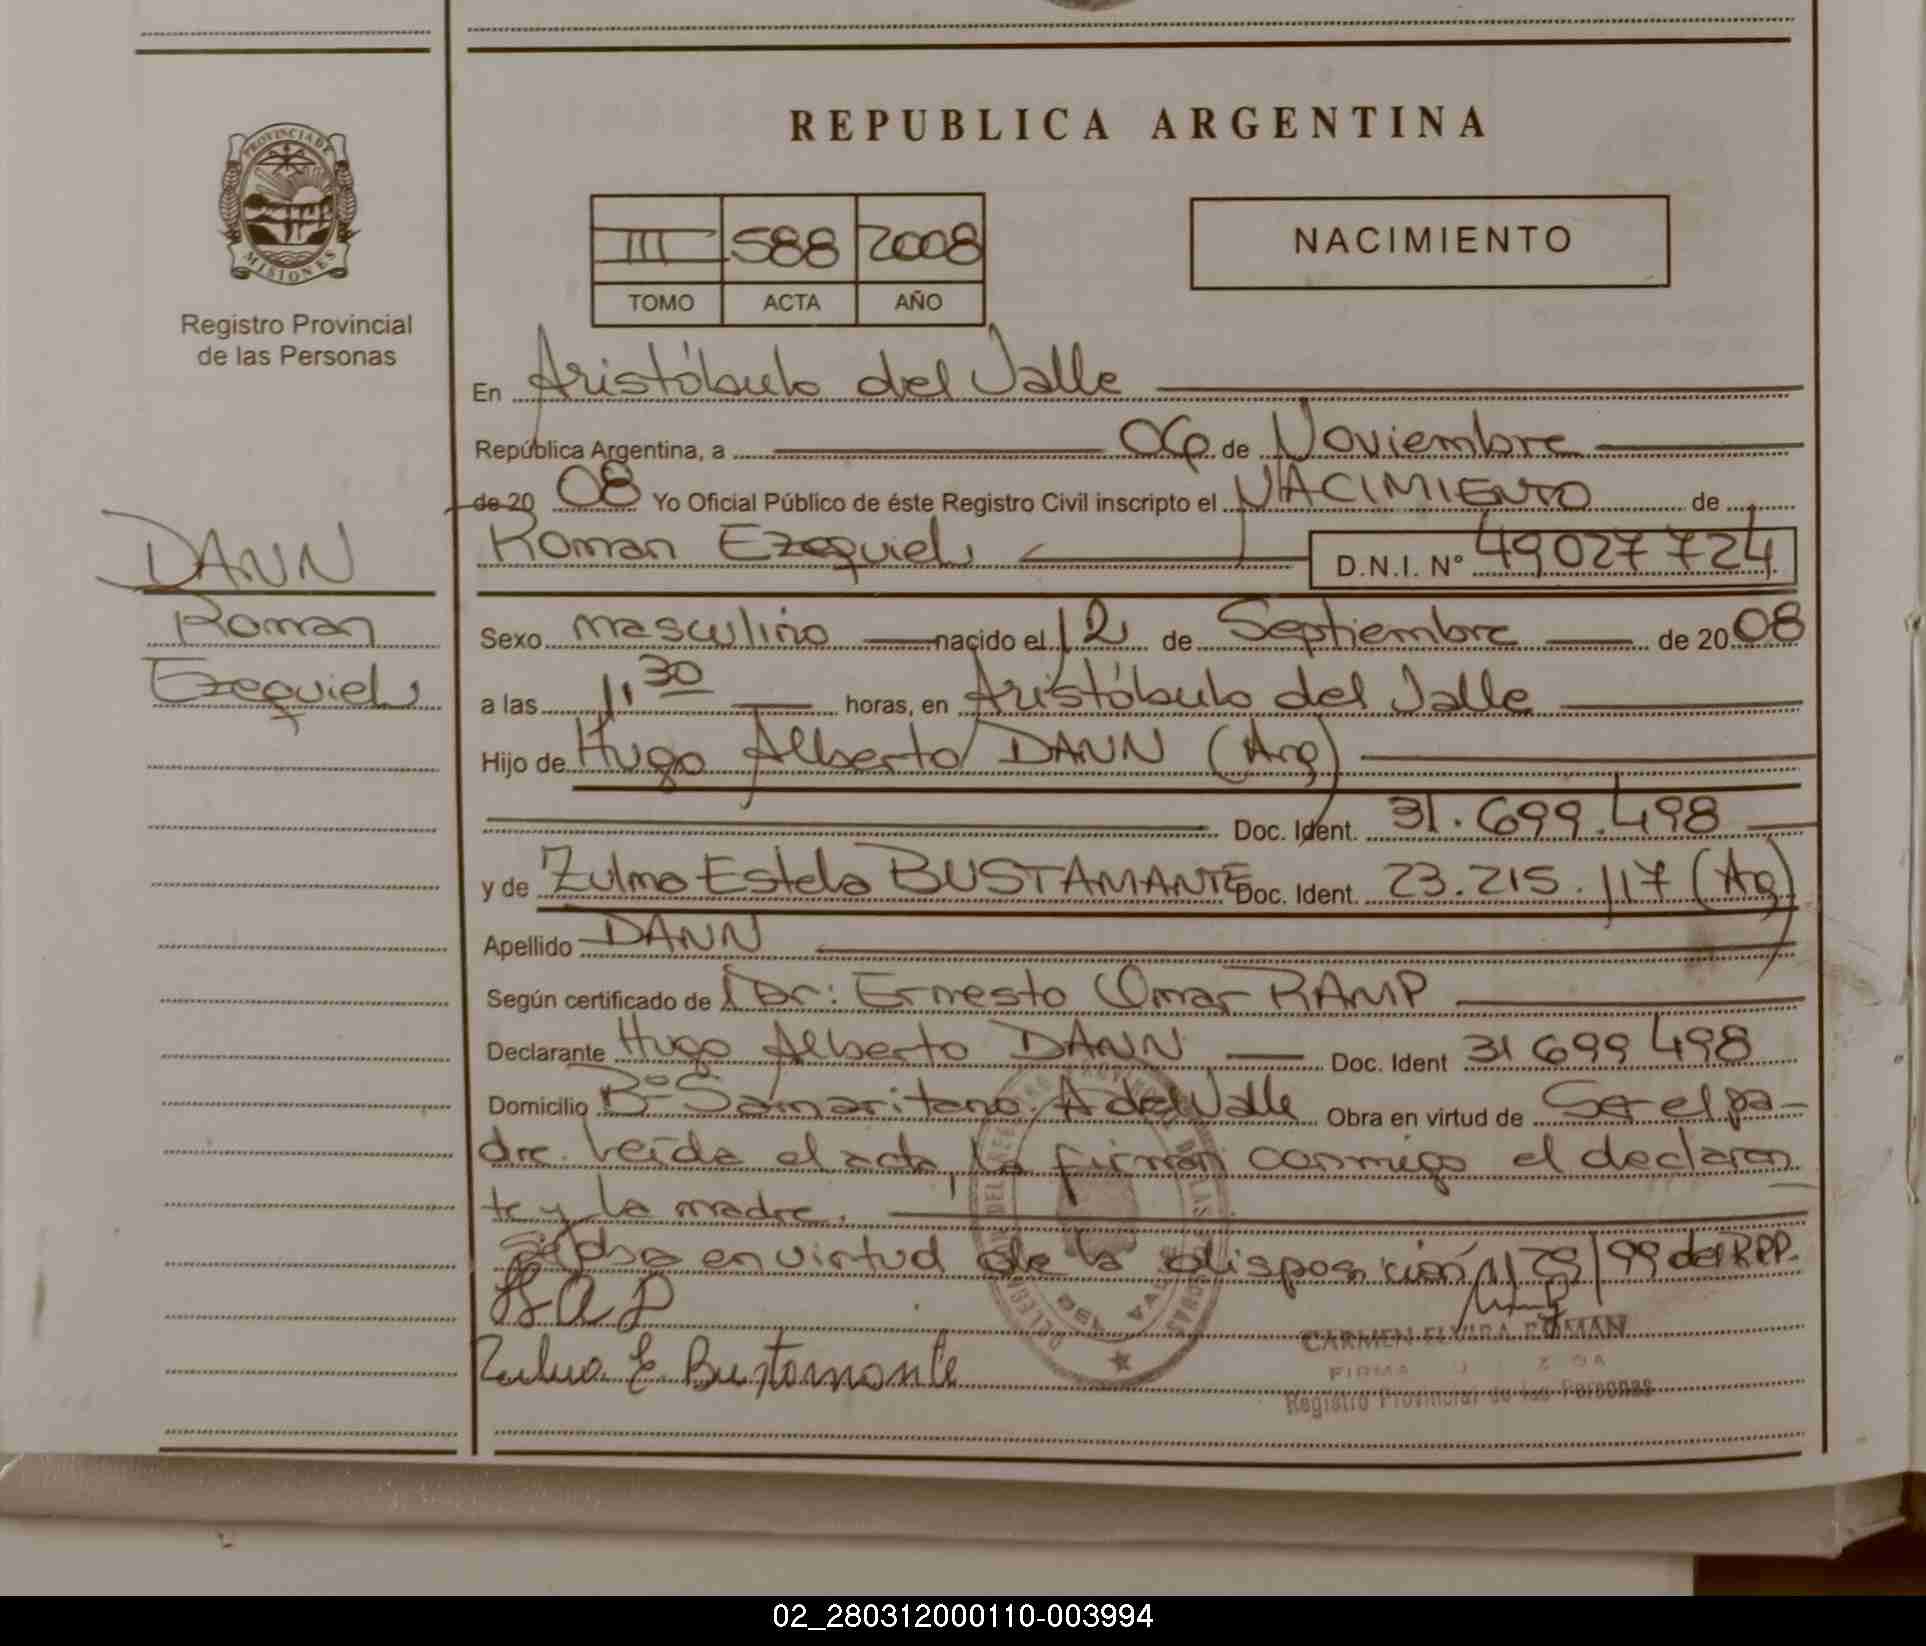 PROVINCIA DE
MISIONES
Registro Provincial
de las Personas
DANN
Roman
Ezequiel
REPUBLICA ARGENTINA
III 588 2008
TOMO ACTA AÑO
NACIMIENTO
En Aristóbulo del Valle
República Argentina, a 06 de Noviembre
de 20 08 Yo Oficial Público de éste Registro Civil inscripto el NACIMIENTO de
Roman Ezequiel D.N.I. N° 49027724
Sexo masculino nacido el 12 de Septiembre de 20 08
a las 1,30 horas, en Aristóbulo del Valle
Hijo de Hugo Alberto DANN (Arg)
Doc. Ident. 31.699.498
y de Zulma Estela BUSTAMANTE Doc. Ident. 23.215.117 (Ag)
Apellido DANN
Según certificado de Dr: Ernesto Omar RAMP
Declarante Hugo Alberto DANN Doc. Ident 31699498
Domicilio B° Samaritano. A del Valle Obra en virtud de Ser el pa-
dre. Leída el acta, la firman conmigo el declaran
te y la madre.
en virtud de la disposición 99 del RPP.
HAD
Zulma E Bustamante
CARMEN ELVIRA
FIRMA
Registro Provincial de las Personas
02_280312000110-003994